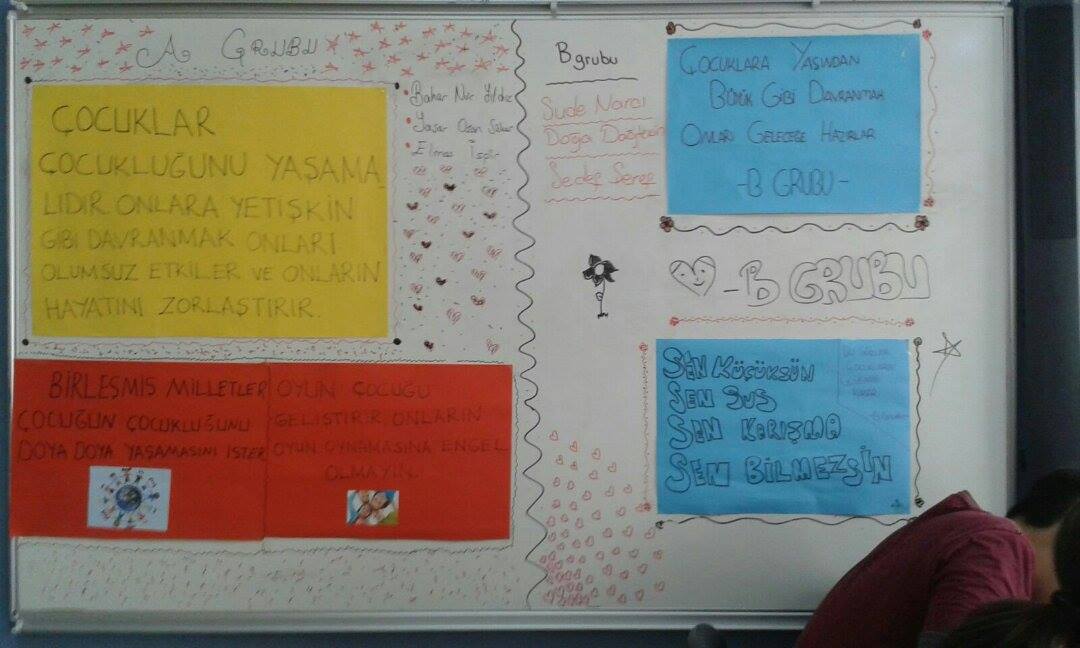 A GRUBU
ÇOCUKLAR
ÇOCUKLUĞUNU YAŞAMA
LIDIR ONLARA YETİŞKİN
GİBİ DAVRANMAK ONLARI
OLUMSUZ ETKİLER VE ONLARIN
HAYATINI ZORLAŞTIRIR.
Bahar Nur Yıldız
Yaşar Ozan
Elmas İspir
BİRLEŞMİS MİLLETLER
ÇOCUĞUN ÇOCUKLUĞUNU
DOYA DOYA YAŞAMASINI İSTER
OYUN ÇOCUĞU
GELİŞTİRİR ONLARIN
OYUN OYNAMASINA ENGEL
OLMAYIN.
B grubu
Sude Narcı
Doğa
Sedef
ÇOCUKLARA YAŞINDAN
BÜYÜK GİBİ DAVRANMAK
ONLARI GELECEĞE HAZIRLAR
-B GRUBU-
-B GRUBU
SEN KÜÇÜKSÜN
SEN SUS
SEN KARIŞMA
SEN BİLMEZSİN